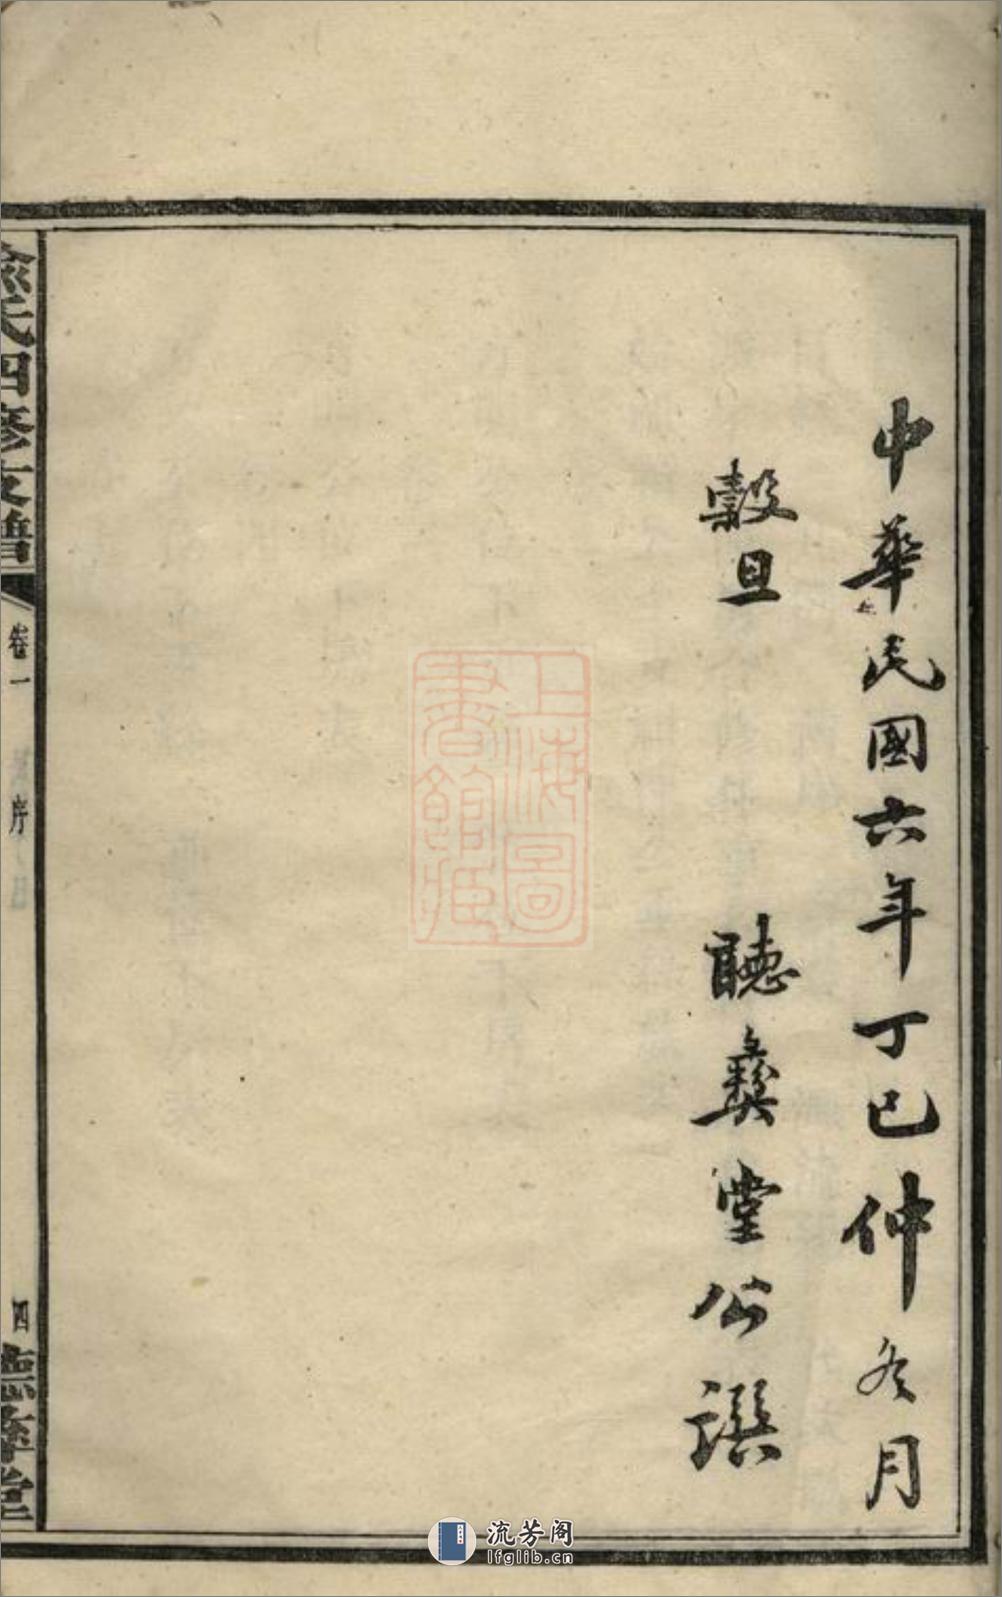 中華民國六年丁巳仲冬月
穀旦
聽彝堂公譔
上海圖
書館藏
氏四修支譜
卷一
序
四
堂
流芳阁
lfglib.cn